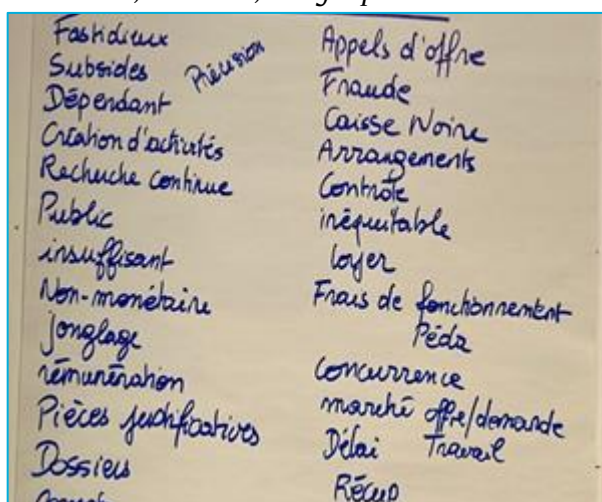 Fastidieux
Subsides
Précision
Dépendant
Création d'activités
Recherche continue
Public
insuffisant
Non-monétaire
Jonglage
rémunération
Pièces justificatives
Dossiers
Appels d'offre
Fraude
Caisse Noire
Arrangements
Contrôle
inéquitable
loyer
Frais de fonctionnement
Péda
concurrence
marché offre/demande
Délai Travail
Récup